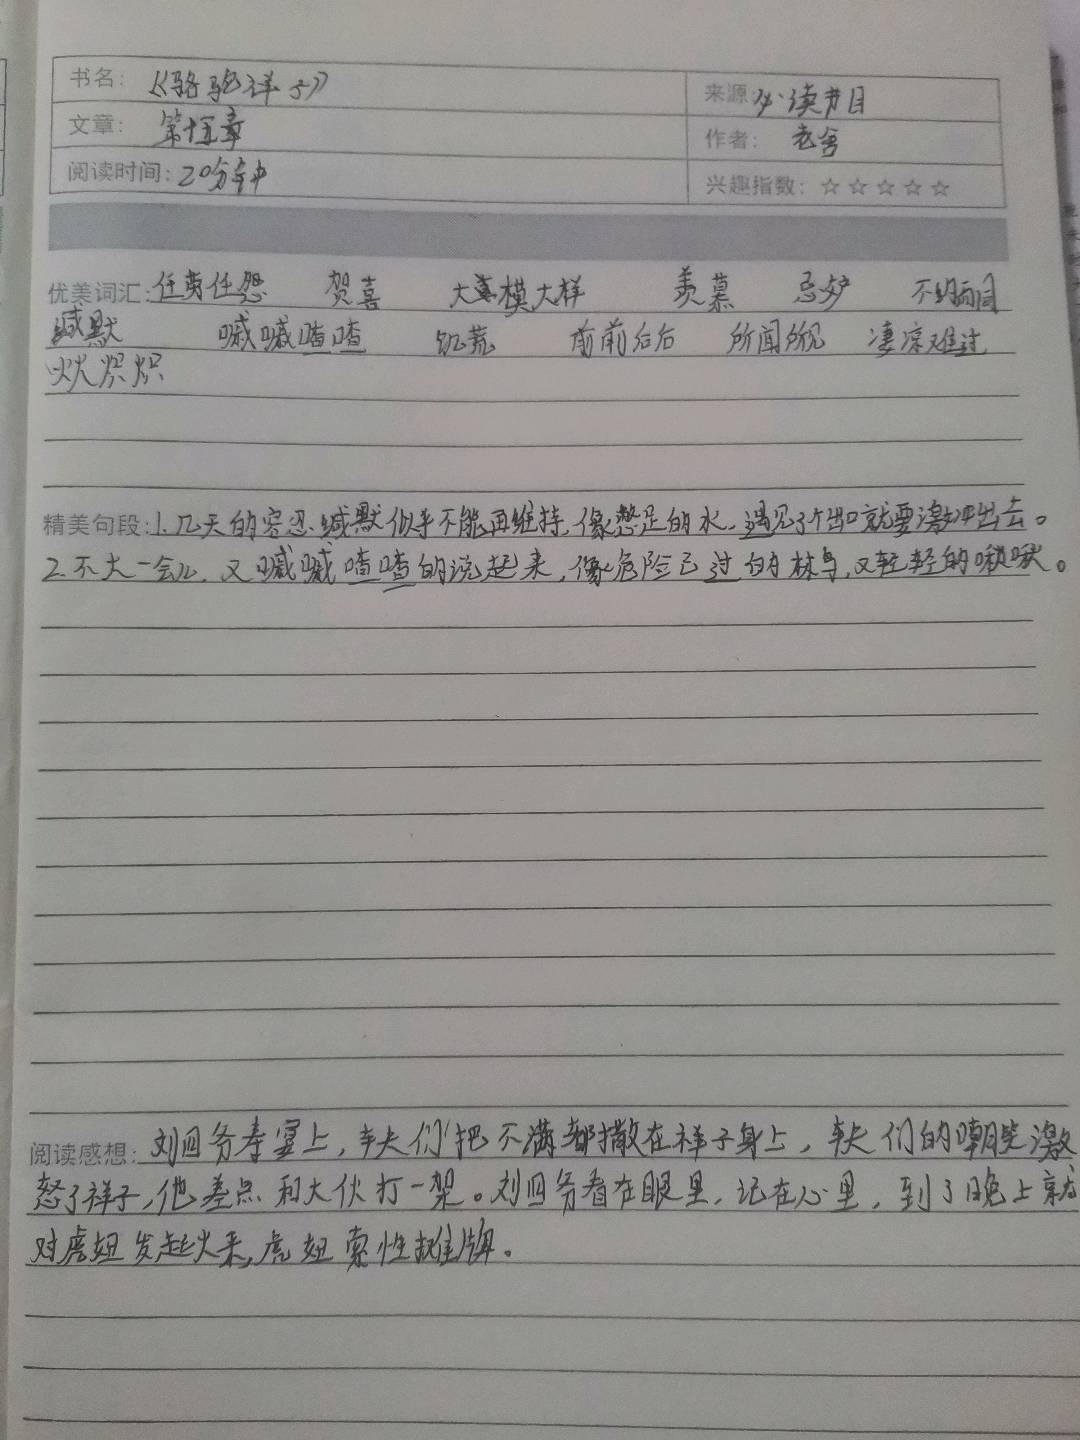 书名：《骆驼祥子》 来源：必读书目
文章：第十五章 作者：老舍
阅读时间：20分钟 兴趣指数：☆☆☆☆☆
优美词汇：任劳任怨 贺喜 大模大样 羡慕 忌妒 不约而同
缄默 嘁嘁喳喳 饥荒 前前后后 所闻所见 凄凉难过
火炽炽
精美句段：1.几天的容忍缄默似乎不能再维持，像憋足的水，遇见个出口就要激冲出去。
2.不大一会儿，又嘁嘁喳喳的说起来，像危险已过的林鸟，又轻轻的啾啾。
阅读感想：刘四爷寿宴上，车夫们把不满都撒在祥子身上，车夫们的嘲笑激
怒了祥子，他差点和大伙打一架。刘四爷看在眼里，记在心里，到了晚上就
对虎妞发起火来，虎妞索性摊牌。